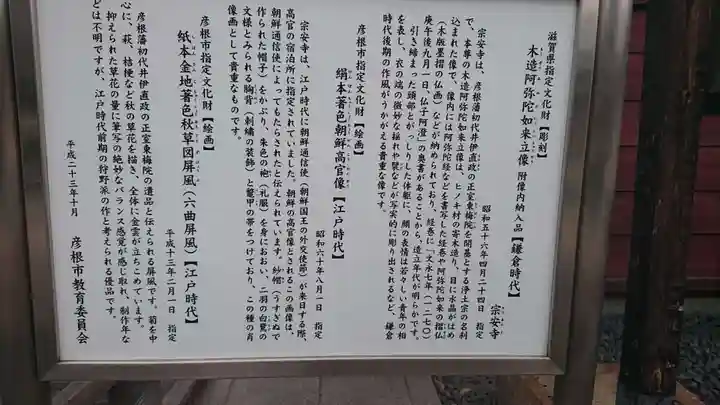 滋賀県指定文化財【彫刻】
木造阿弥陀如来立像 附像内納入品【鎌倉時代】
昭和五十六年四月二十四日 指定
宗安寺
宗安寺は、彦根藩初代井伊直政の正室東梅院を開基とする浄土宗の名刹
で、本尊の木造阿弥陀如来立像は、ヒノキ材の寄木造り、目に水晶がはめ
込まれた像で、像内には阿弥陀経などを書写した経巻や阿弥陀如来の摺仏
(木版墨摺の仏画)などが納められており、経巻に「文永七年(一二七〇)
庚午後九月一日、仏子阿澄」の奥書があることから、造立年代が明らかです。
引き締まった頭部とがっしりした体躯に、顔の表情は若々しい青年の相
を表し、衣の端の微妙な揺れや襞などが写実的に彫り出されるなど、鎌倉
時代後期の作風がうかがえる貴重な像です。
彦根市指定文化財【絵画】
絹本著色朝鮮高官像【江戸時代】
昭和六十年八月一日 指定
宗安寺は、江戸時代に朝鮮通信使(朝鮮国王の外交使節)が来日する際、
高官の宿泊所に指定されていました。朝鮮の高官像とされるこの画像は、
朝鮮通信使によってもたらされたと伝えられています。紗帽(うすぎぬで
作られた帽子)をかぶり、朱色の袍(礼服)を身におおい、二羽の白鷺の
文様とみられる胸背(刺繍の装飾)と鼈甲の帯をつけており、この種の肖
像画として貴重なものです。
彦根市指定文化財【絵画】
紙本金地著色秋草図屏風(六曲屏風)【江戸時代】
平成十三年二月一日 指定
彦根藩初代井伊直政の正室東梅院の遺品と伝えられる屏風です。菊を中
心に、萩、桔梗など秋の草花を描き、全体に金雲が立ちこめています。
抑えられた草花の量に筆写の絶妙なバランス感覚が感じ取れ、制作年な
どは不明ですが、江戸時代前期の狩野派の作と考えられる優品です。
平成二十三年十月
彦根市教育委員会